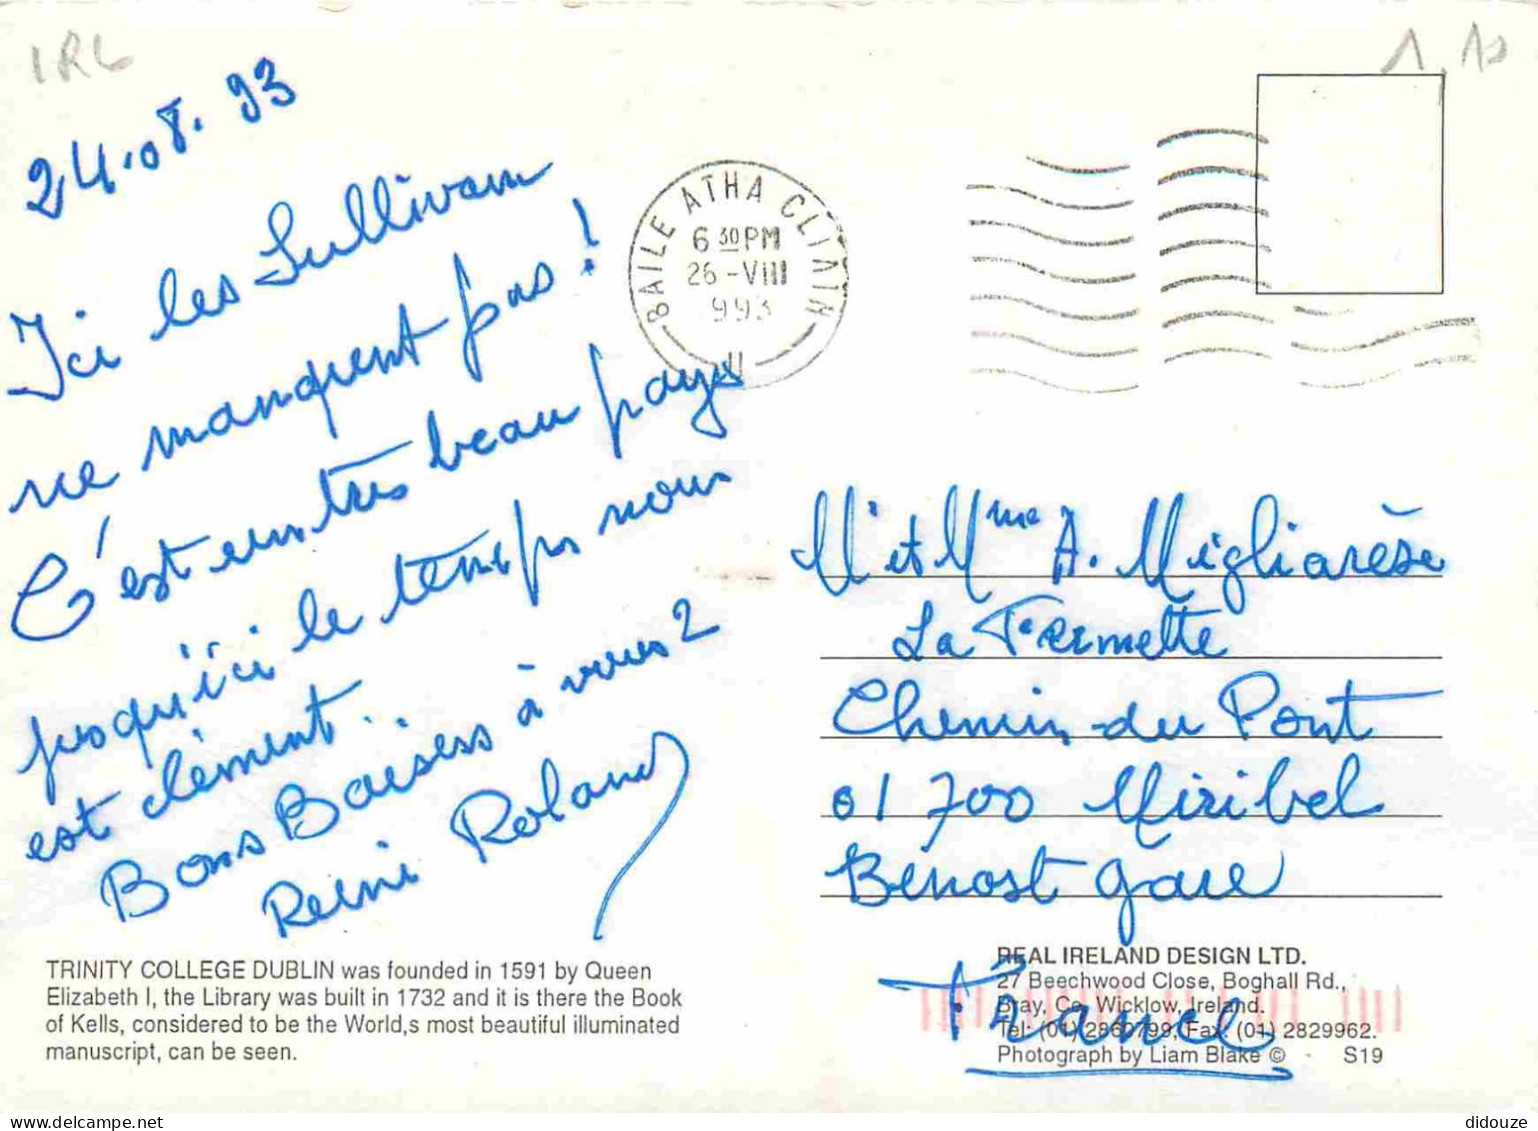 IRL
24.08.93
Ici les Sullivan
ne manquent pas !
C'est un très beau pays
jusqu'ici le temps nous
est clément..
Bons Baisers à vous 2
Roland
BAILE ATHA CLIATH
6 30 PM
26-VIII
993
M et Mme A. Migliarèse
La Fermette
Chemin du Pont
01700 Miribel
Bénost gare
France
TRINITY COLLEGE DUBLIN was founded in 1591 by Queen
Elizabeth I, the Library was built in 1732 and it is there the Book
of Kells, considered to be the World,s most beautiful illuminated
manuscript, can be seen.
REAL IRELAND DESIGN LTD.
27 Beechwood Close, Boghall Rd.,
Bray, Co. Wicklow, Ireland.
Tel: (01) 2860799, Fax. (01) 2829962.
Photograph by Liam Blake © S19
delcampe.net
didouze